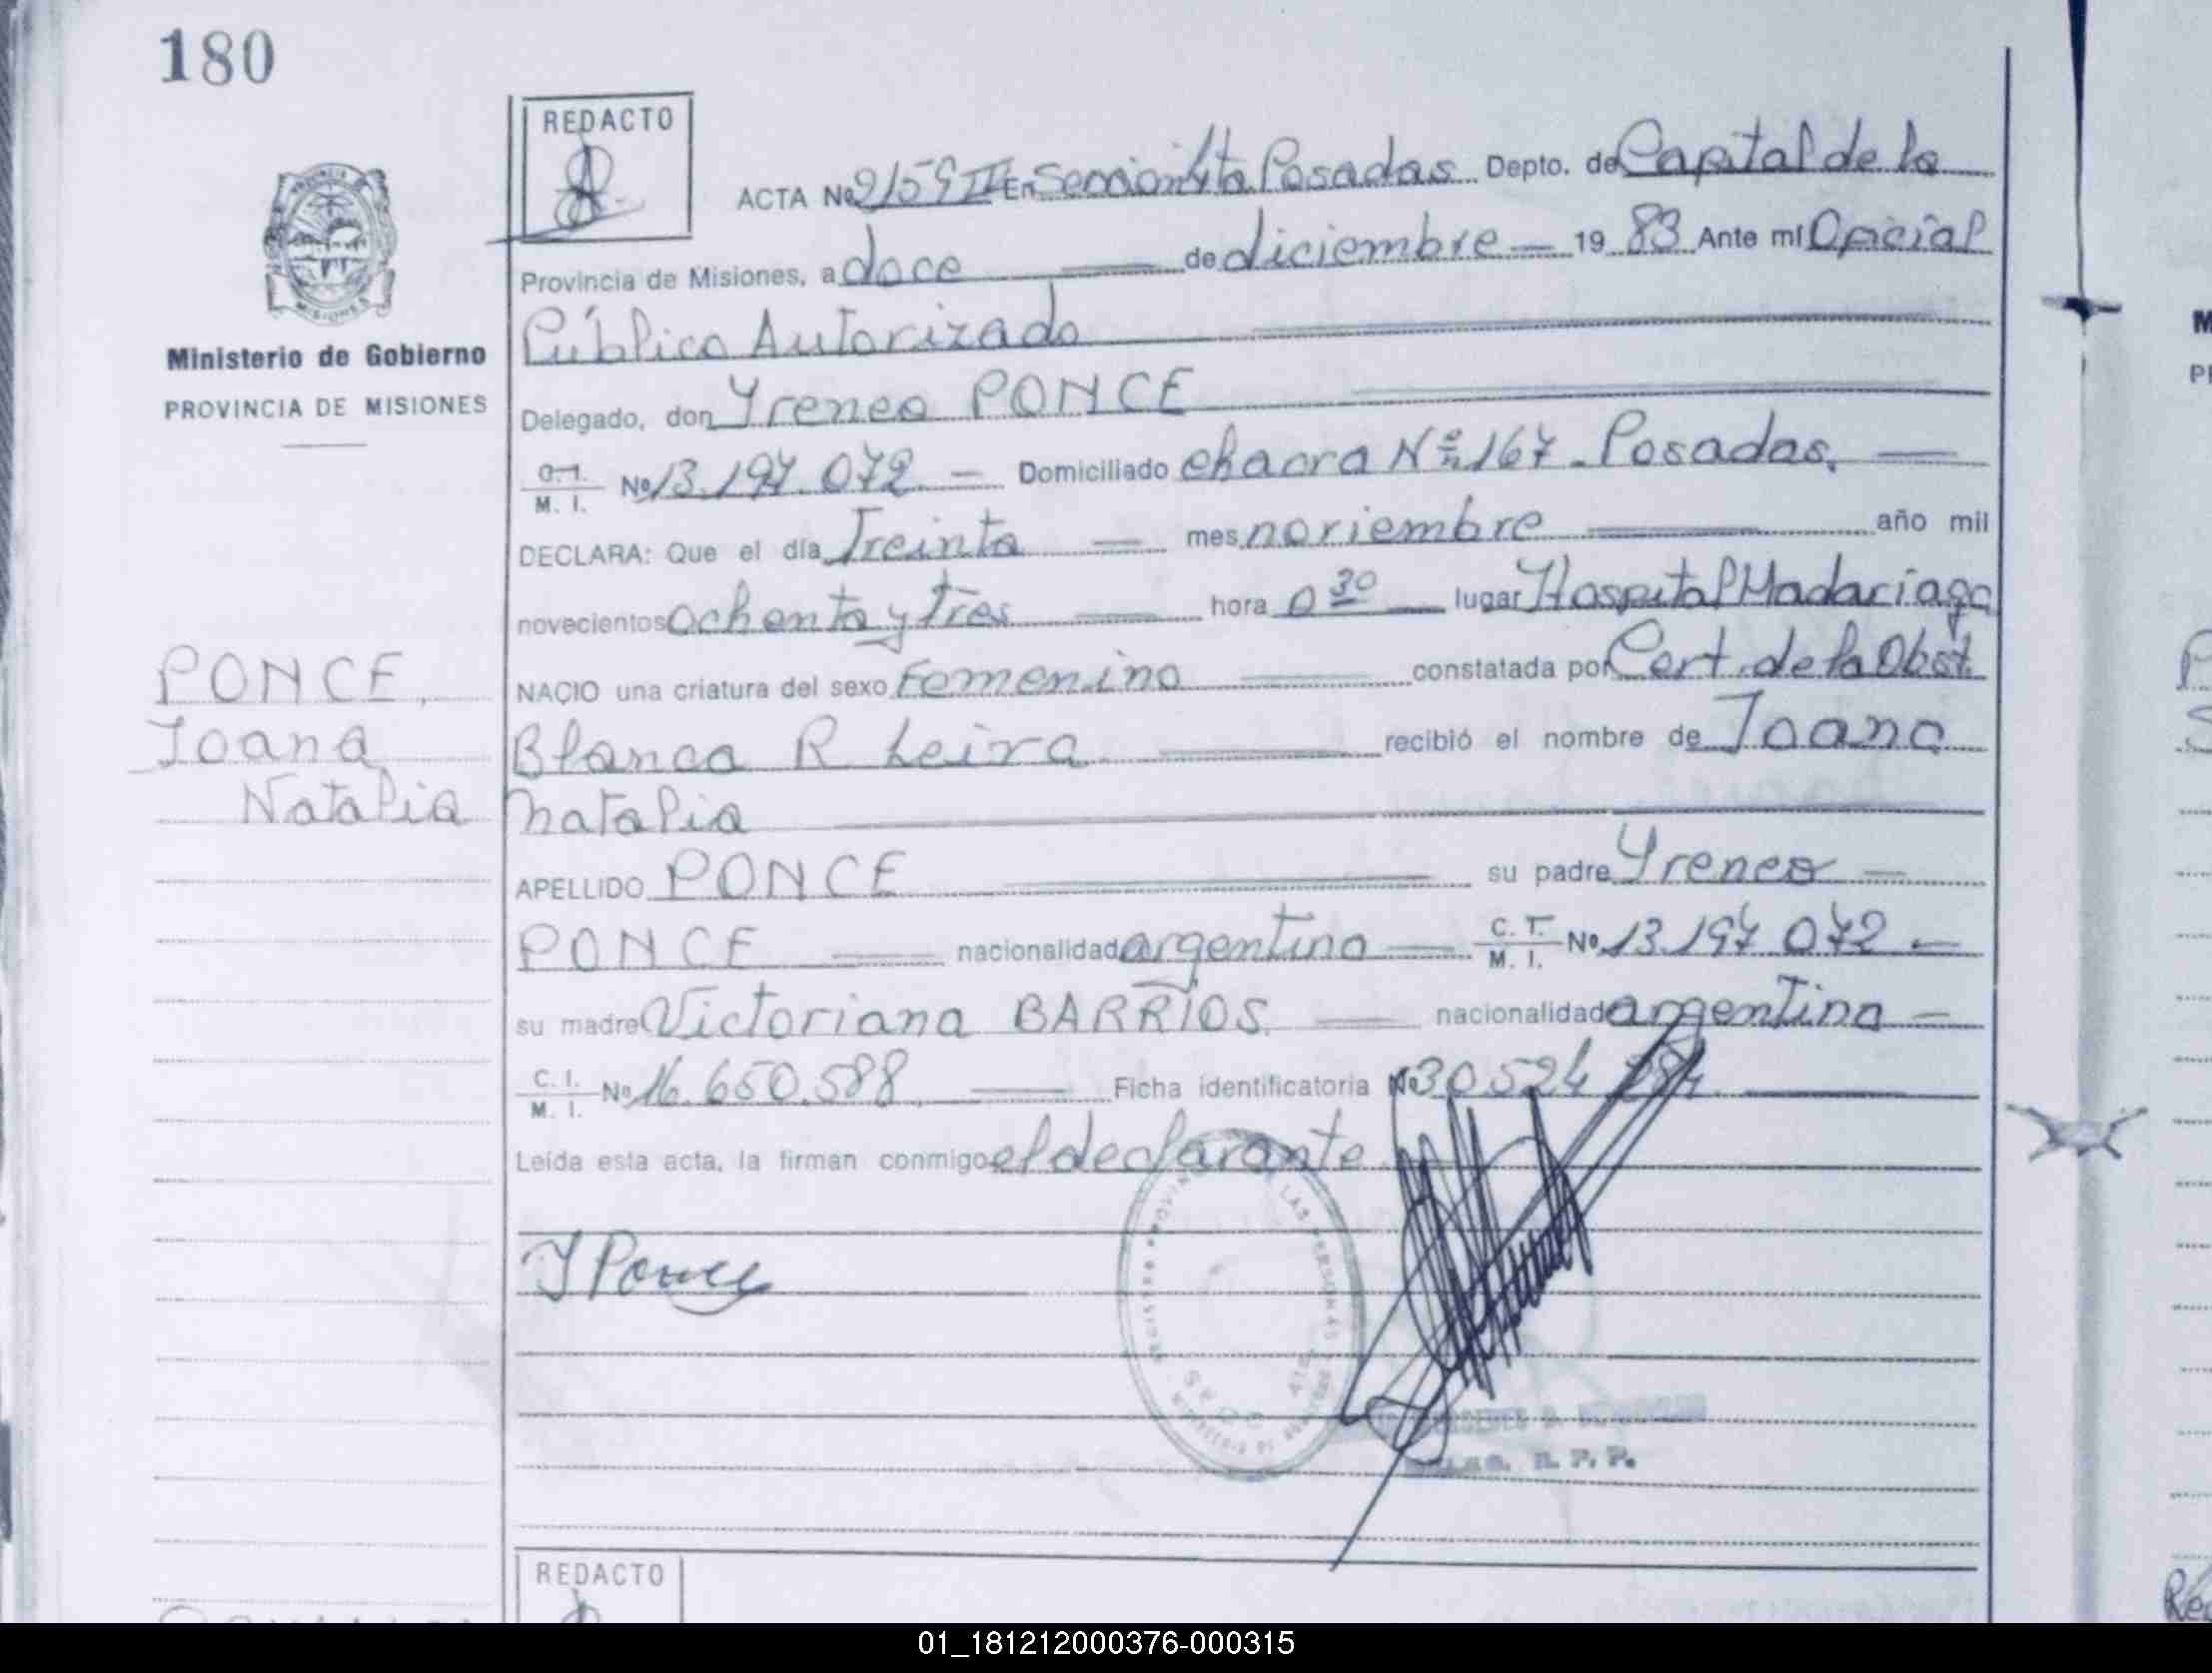 180
REDACTO
ACTA Nº 2159 II En Sección 4ta Posadas Depto. de Capital de la
Provincia de Misiones, a doce de diciembre 19 83 Ante mí Oficial
Público Autorizado
Ministerio de Gobierno
PROVINCIA DE MISIONES
Delegado, don Yreneo PONCE
C.I.
M. I. Nº 13.197.072 Domiciliado chacra Nº 167 - Posadas.
DECLARA: Que el día Treinta mes noviembre año mil
novecientos ochenta y tres hora 0 30 lugar Hospital Madariaga
NACIO una criatura del sexo Femenino constatada por Cert. de la Obst.
Blanca R Leiva recibió el nombre de Joana
Natalia
PONCE,
Joana
Natalia
APELLIDO PONCE su padre Yreneo
PONCE nacionalidad argentina C. I.
M. I. Nº 13.197.072
su madre Victoriana BARRIOS. nacionalidad argentina
C. I.
M. I. Nº 16.650.588 Ficha identificatoria Nº 30.524 284.
Leída esta acta, la firman conmigo el declarante
Y Ponce
R. P. P.
REDACTO
01_181212000376-000315